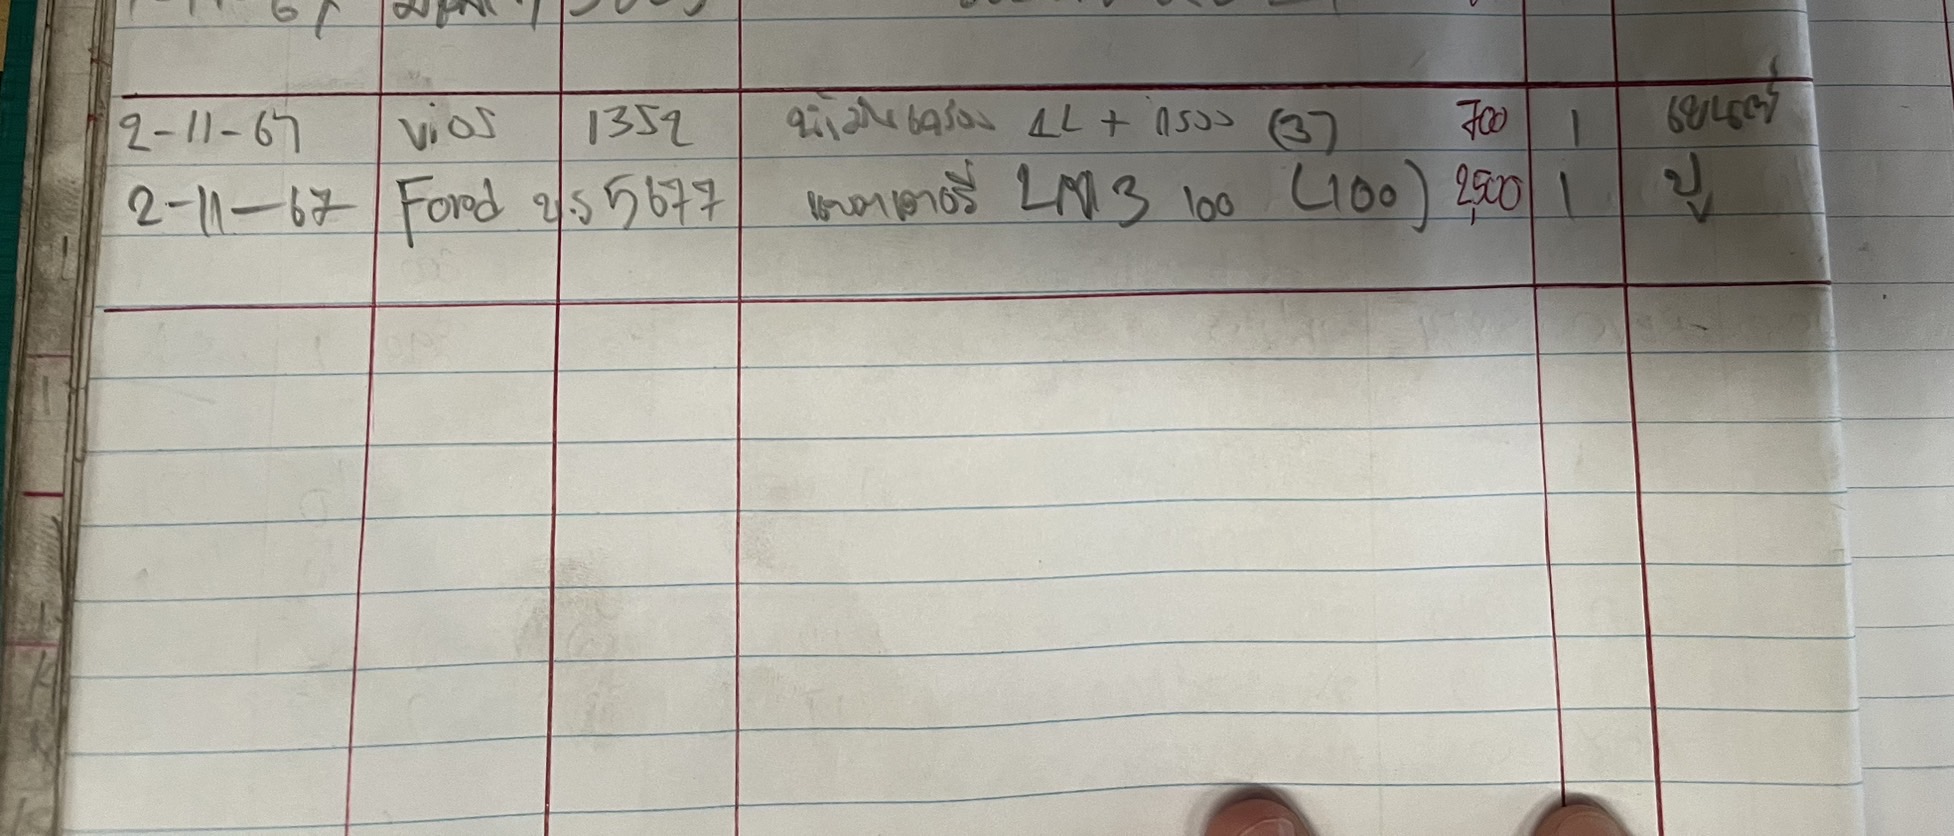 2-11-67 vios 1352 น้ำมันเครื่อง 1L + กรอง (3) 700 1
2-11-67 Ford ข.ร 5677 แบตเตอรี่ LN3 100 (100) 2,500 1 ปู